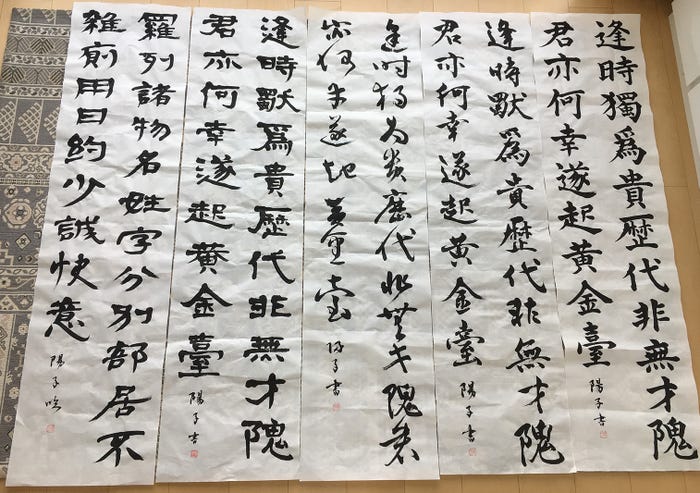 逢時獨爲貴歴代非無才隗
君亦何幸遂起黄金臺
陽子書
逢時獨爲貴歴代非無才隗
君亦何幸遂起黄金臺
陽子書
逢時獨為貴歴代非無才隗君
亦何幸遂起黄金臺
陽子書
逢時獨爲貴歴代非無才隗
君亦何幸遂起黄金臺
陽子書
羅列諸物名姓字分別部居不
雜廁用日約少誠快意
陽子臨